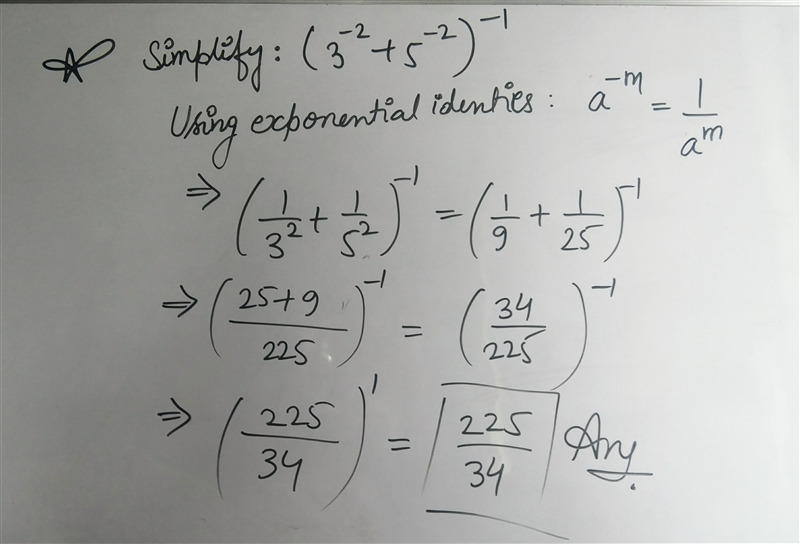 Simplify: (3⁻² + 5⁻²)⁻¹
Using exponential identies: a⁻ᵐ = 1/aᵐ
⇒ (1/3² + 1/5²)⁻¹ = (1/9 + 1/25)⁻¹
⇒ ((25+9)/225)⁻¹ = (34/225)⁻¹
⇒ (225/34)¹ = 225/34